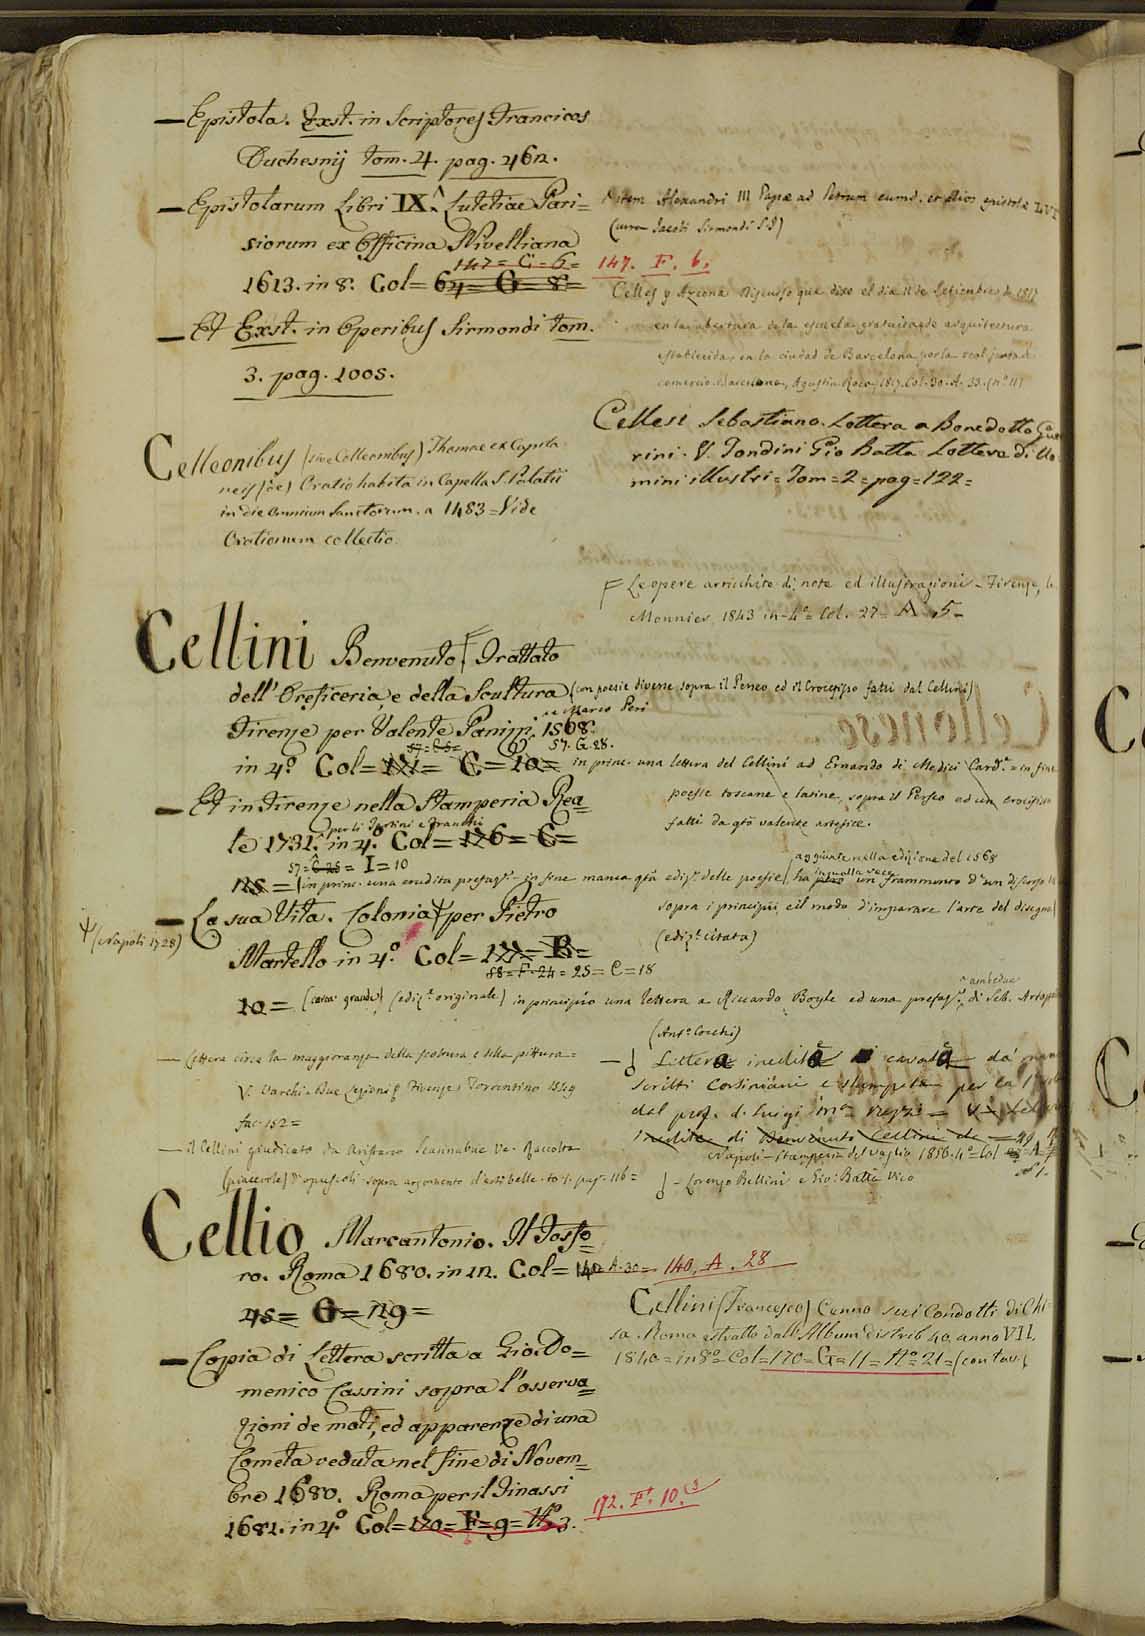 — Epistola. Exst. in Scriptores Francicos
Duchesnij tom. 4. pag. 462.
— Epistolarum Libri IX.^ Lutetiae Pari=
siorum ex Officina Nivelliana
147 = C = 6 =
1613. in 8.º Col= 64= G= 8=
— Et Exst. in Operibus Sirmondi tom.
3. pag. 1005.
Celleonibus (sive Colleonibus) Thomae ex Capita
neis (de) Oratio habita in Capella S. Palatii
in die Omnium Sanctorum. a 1483 = Vide
Orationum collectio.
Cellini Benvenuto F Trattato
dell'Oreficeria, e della Scultura (con poesie diverse sopra il Perseo ed il Crocifisso fatti dal Cellini)
e Marco Peri
Firenze per Valente Panizij. 1568.
57. G. 28.
in 4.º Col= 121= C= 10=
— Et in Firenze nella Stamperia Rea=
per li Tartini e Franchi
le 1731.^ in 4.º Col= 126= C=
57= C 25 = I = 10
25 = (in princ. una erudita prefaz.e - in fine manca q.ta ediz.e delle poesie) ha un frammento d'un discorso
— La sua Vita. Colonia Ψ per Pietro
Ψ (Napoli 1728)
Martello in 4.º Col= 121= B=
58= F. 24 = 25 = C = 18
10 = (carta grande) (ediz.e originale) in principio una lettera a Riccardo Boyle ed una prefaz.e di Seb. Artopolita
ambedue
(Ant.o Cocchi)
— Lettera circa la maggioranza della scoltura e della pittura =
V. Varchi. Due Lezioni. Firenze Torrentino 1549
fac. 152 =
— il Cellini giudicato da Aristarco Scannabue Ve. Raccolta
(piacevole) d'opuscoli sopra argomento d'arti belle. to. 1. pag. 116 =
Cellio Marcantonio. Il Fosfo=
ro. Roma 1680. in 12. Col= 140 A. 30 = 140. A. 28
45= G= 29=
— Copia di Lettera scritta a Gio. Do=
menico Cassini sopra l'osserva=
zioni de moti, ed apparenze di una
Cometa veduta nel fine di Novem=
bre 1680. Roma per il Tinassi
1681. in 4.º Col= 120= F= 9= N.º 3.
172. F. 10.
^ item Alexandri III Papae ad Petrum eumd. et alios epistolae LVI
(curam Jacobi Sirmondi S.J)
147. F. 6.
Celles y Azcona Discurso que dixo el dia 11 de Setiembre de 1817
en la abertura de la escuela gratuita de arquitectura
establecida en la ciudad de Barcelona por la real junta de
comercio. Barcelona, Agustin Roca, 1817. Col. 30. A. 33. (n.º 11)
Cellesi Sebastiano. Lettera a Benedetto Gue
rini. V. Fondini Gio Batta Lettere di Uo
mini illustri = Tom = 2 = pag = 122 =
F Le opere arricchite di note ed illustrazioni - Firenze, le
Monnier 1843 in-4.º= Col. 27= A. 5-
in princ. una lettera del Cellini ad Ernando di Medici Card.e = in fine
poesie toscane e latine, sopra il Perseo ed un crocifisso
fatti da q.to valente artefice.
aggiunte nella edizione del 1568
in quella vece
sopra i principii e il modo d'imparare l'arte del disegno)
(ediz.e citata)
— Lettera inedita cavata da' mano
scritti Corsiniani e stampata per la
dal prof. d. Luigi m.a rezzi = V. Lettera
inedita di Benvenuto Cellini
Napoli - Stamperia del Vaglio 1856. 4.º = Col
- Lorenzo Bellini e Gio: Batta Vico
Cellini (Francesco) Cenno sui Condotti di Chi=
sa. Roma estratto dall'Album distrib. 40. anno VII.
1840 = in 8.º = Col=170= G= 11= N.º 21= (con tav.)